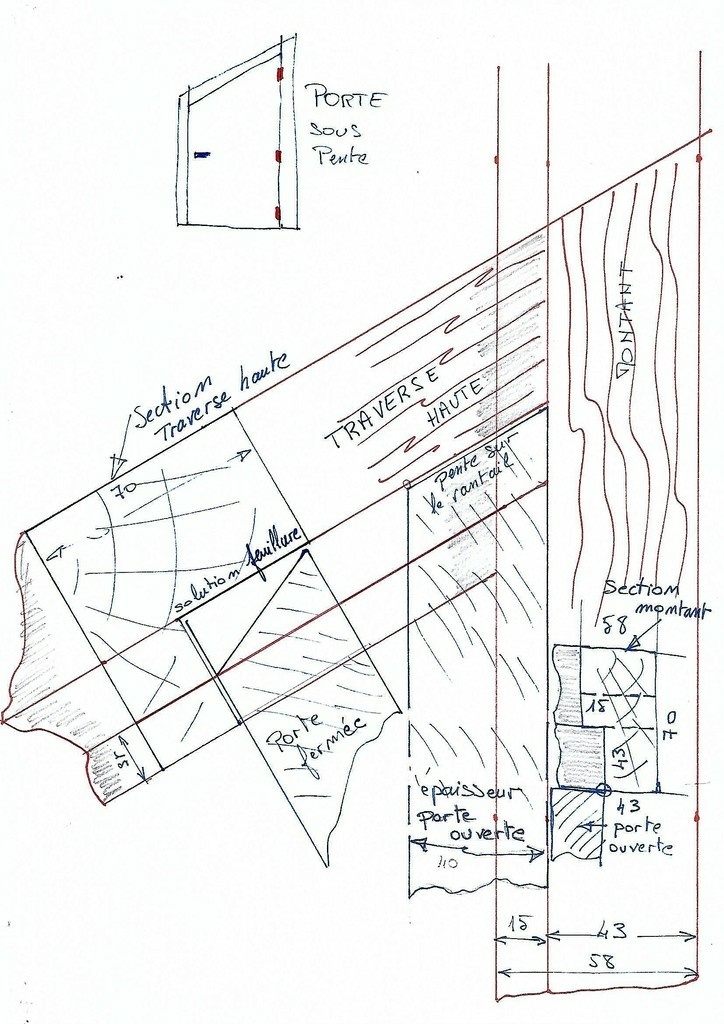 PORTE
sous
Pente
MONTANT
Section
Traverse haute
TRAVERSE
HAUTE
70
pente sur
le vantail
solution feuillure
Section
montant
58
15
70
43
Porte
fermée
15
épaisseur
porte
ouverte
40
43
porte
ouverte
15
43
58